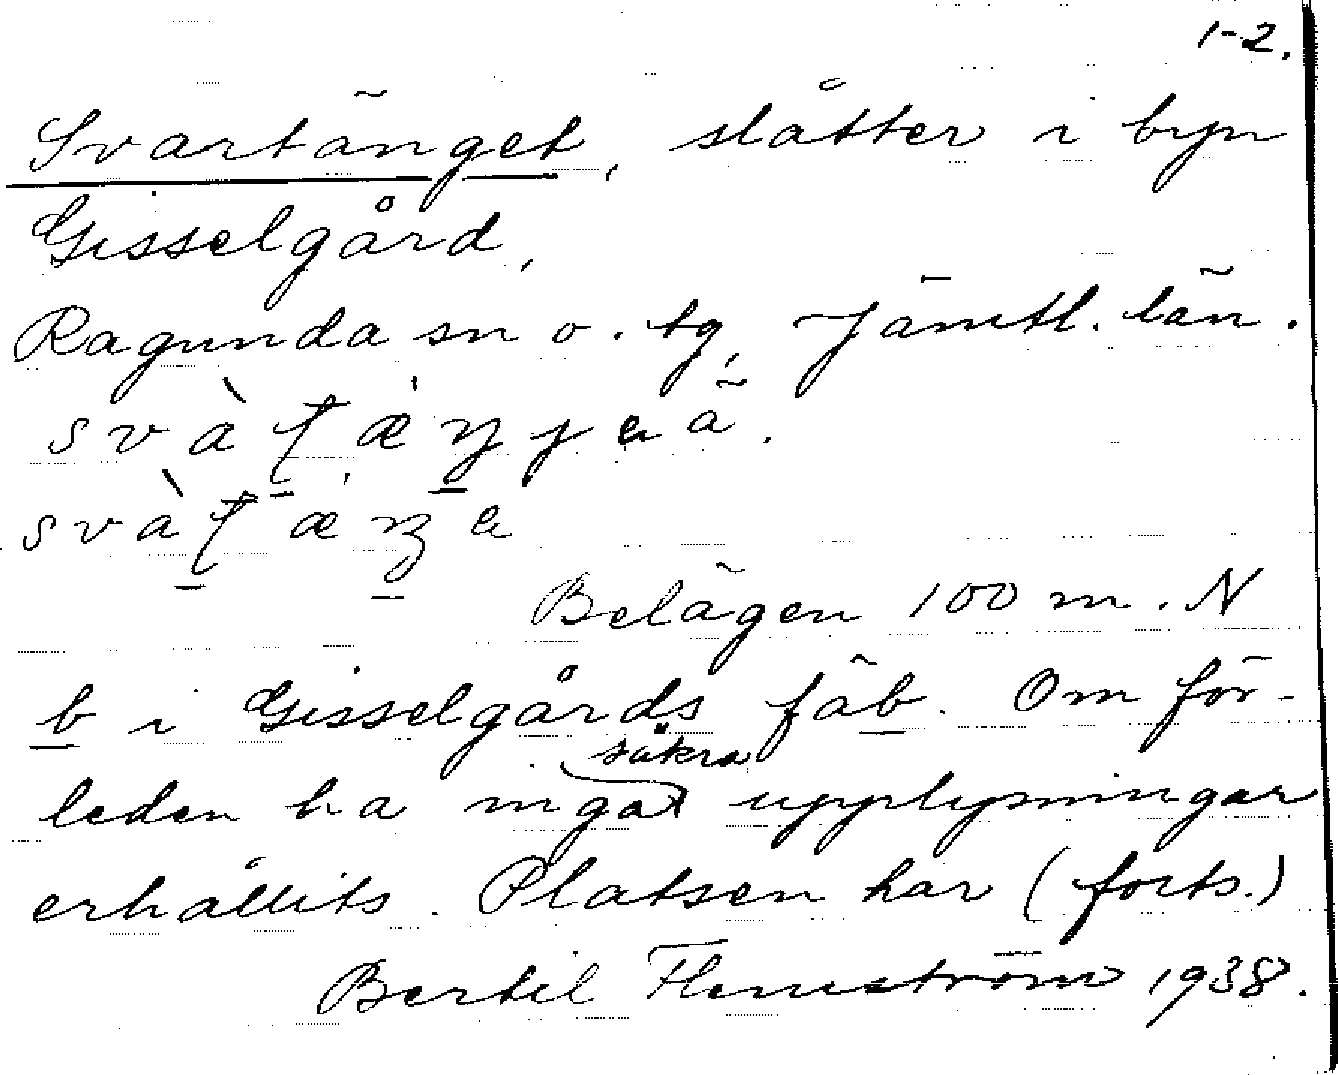 1-2.
Svartänget, slåtter i byn
Gisselgård,
Ragunda sn o. tg, Jämtl. län.
Belägen 100 m. N
b i Gisselgårds fäb. Om för-
säkra
leden ha inga upplysningar
erhållits. Platsen har (forts.)
Bertil Flemström 1938.